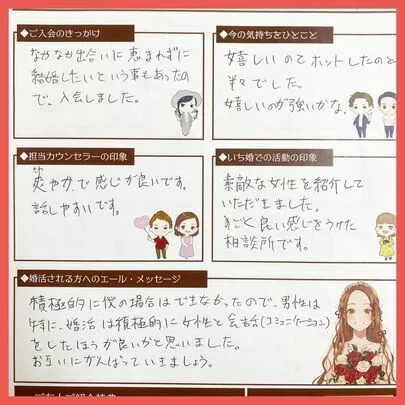 ◆ご入会のきっかけ
なかなか出会いに恵まれずに
結婚したいという事もあったの
で、入会しました。
◆今の気持ちをひとこと
嬉しいのとホットしたのと
半々でした。
嬉しいのが強いかな。
◆担当カウンセラーの印象
爽やかで感じが良いです。
話しやすいです。
◆いち婚での活動の印象
素敵な女性を紹介して
いただきました。
すごく良い感じをうけた
相談所です。
◆婚活される方へのエール・メッセージ
積極的に僕の場合はできなかったので、男性は
特に、婚活は積極的に女性と会話(コミュニケーション)
をしたほうが良いかと思いました。
お互いにがんばっていきましょう。